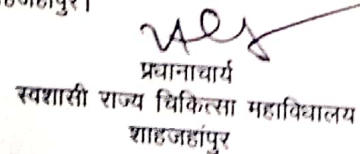 प्रधानाचार्य
स्वशासी राज्य चिकित्सा महाविद्यालय
शाहजहांपुर